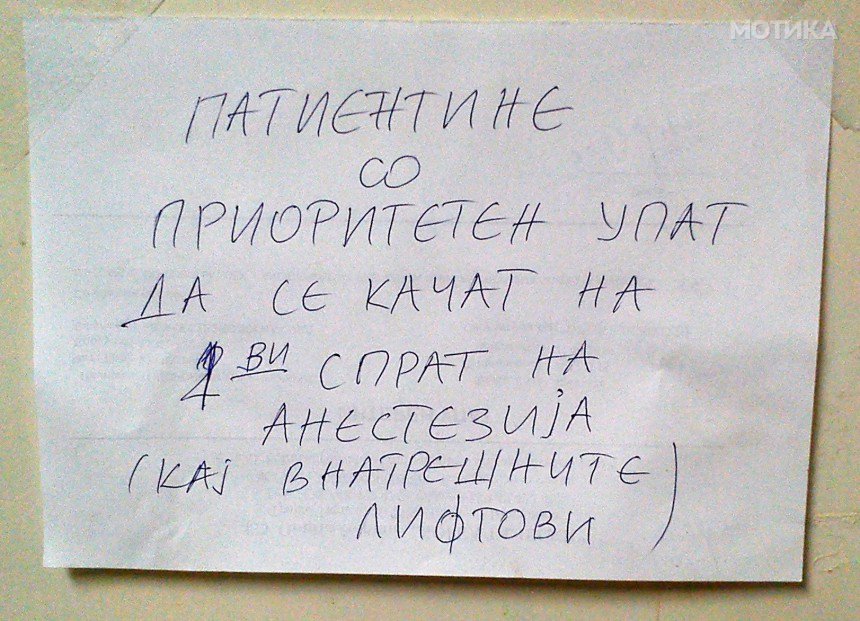 МОТИКА
ПАТИЕНТИНЕ
СО
ПРИОРИТЕТЕН УПАТ
ДА СЕ КАЧАТ НА
1 ВИ СПРАТ НА
АНЕСТЕЗИЈА
(КАЈ ВНАТРЕШНИТЕ
ЛИФТОВИ)